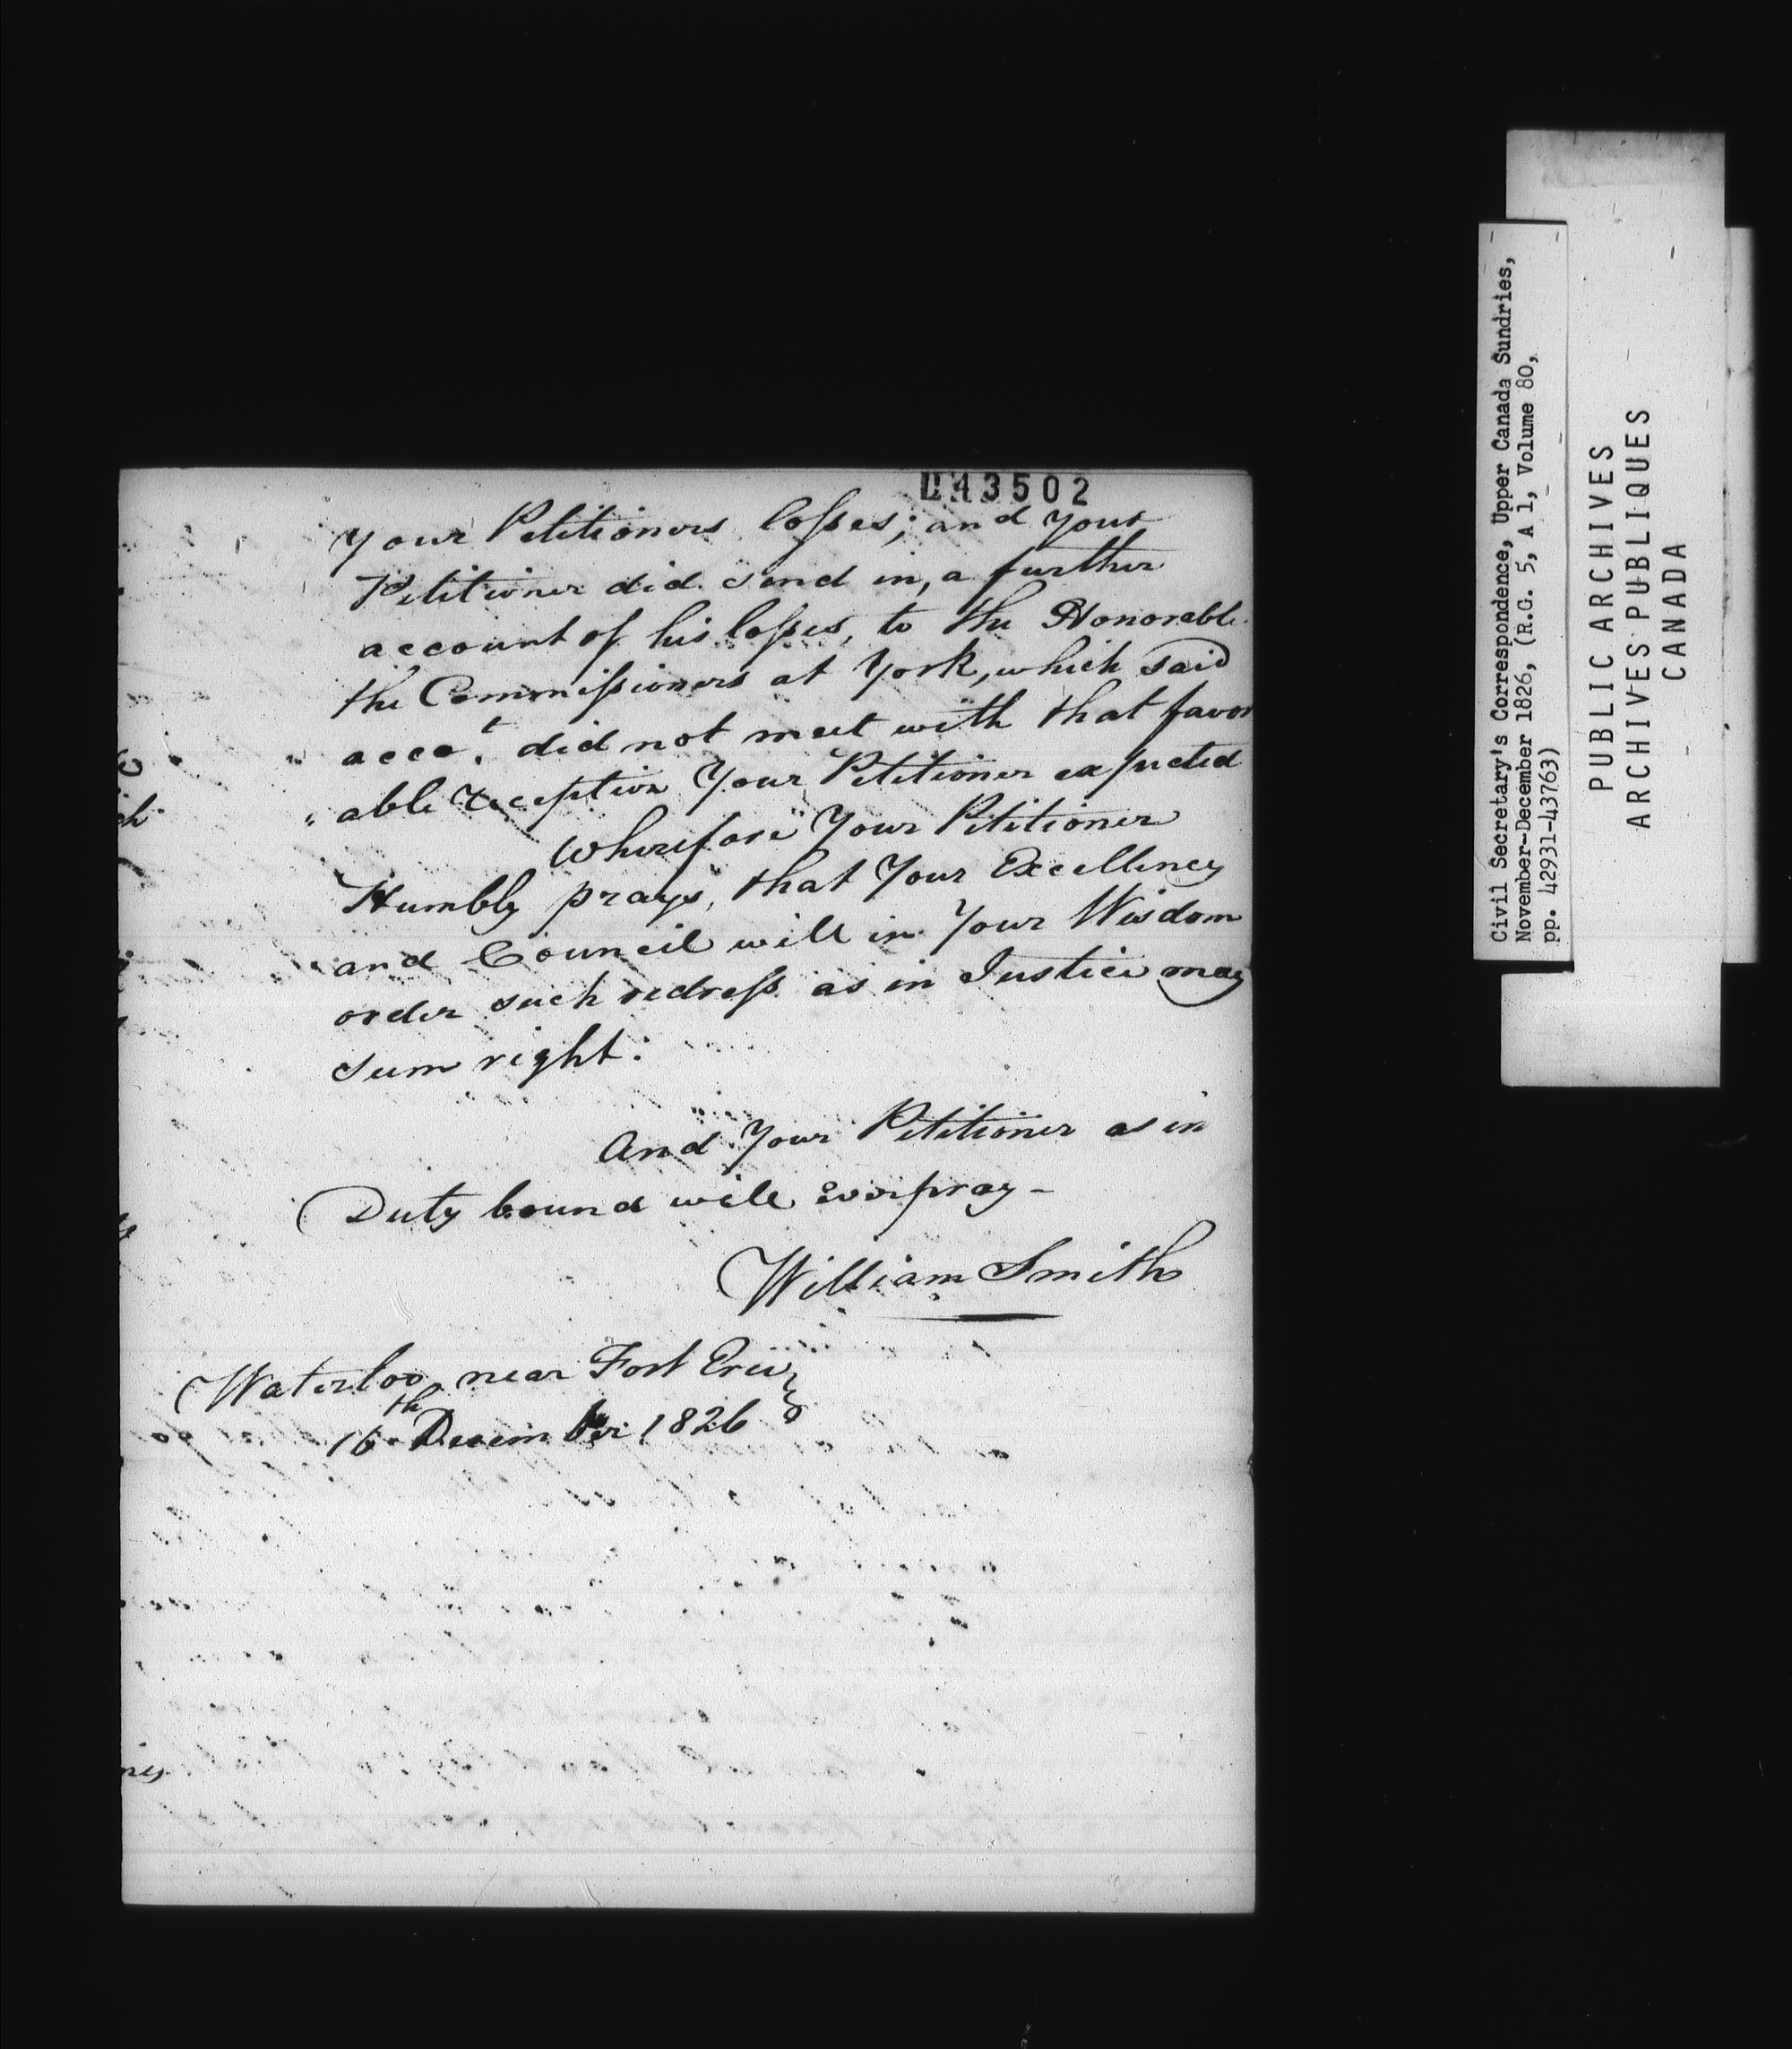 043502
Your Petitioners losses; and your
Petitioner did send in, a further
account of his losses, to the Honorable
the Commissioners at York, which said
acco.t did not meet with that favor
"able reception Your Petitioner expected
Wherefore Your Petitioner
Humbly prays, that Your Excellency
and Council will in Your Wisdom
order such redress as in Justice may
seem right.
And Your Petitioner as in
Duty bound will ever pray -
William Smith
Waterloo near Fort Erie
16th December 1826
Civil Secretary's Correspondence, Upper Canada Sundries,
November-December 1826, (R.G. 5, A 1, Volume 80,
pp. 42931-43763)
PUBLIC ARCHIVES
ARCHIVES PUBLIQUES
CANADA